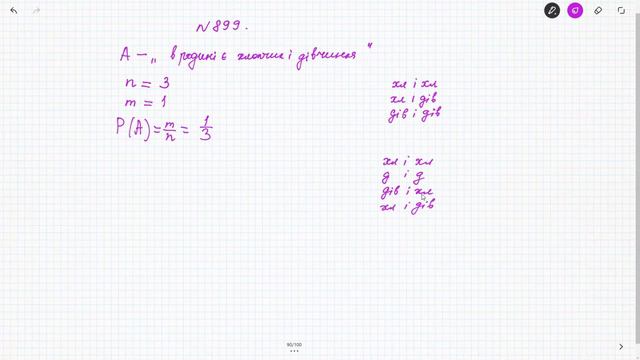 N 899.
A – „ в родині є хлопчик і дівчинка "
n = 3
m = 1
P(A) = m/n = 1/3
хл і хл
хл і дів
дів і дів
хл і хл
д і д
дів і хл
хл і дів
90/100